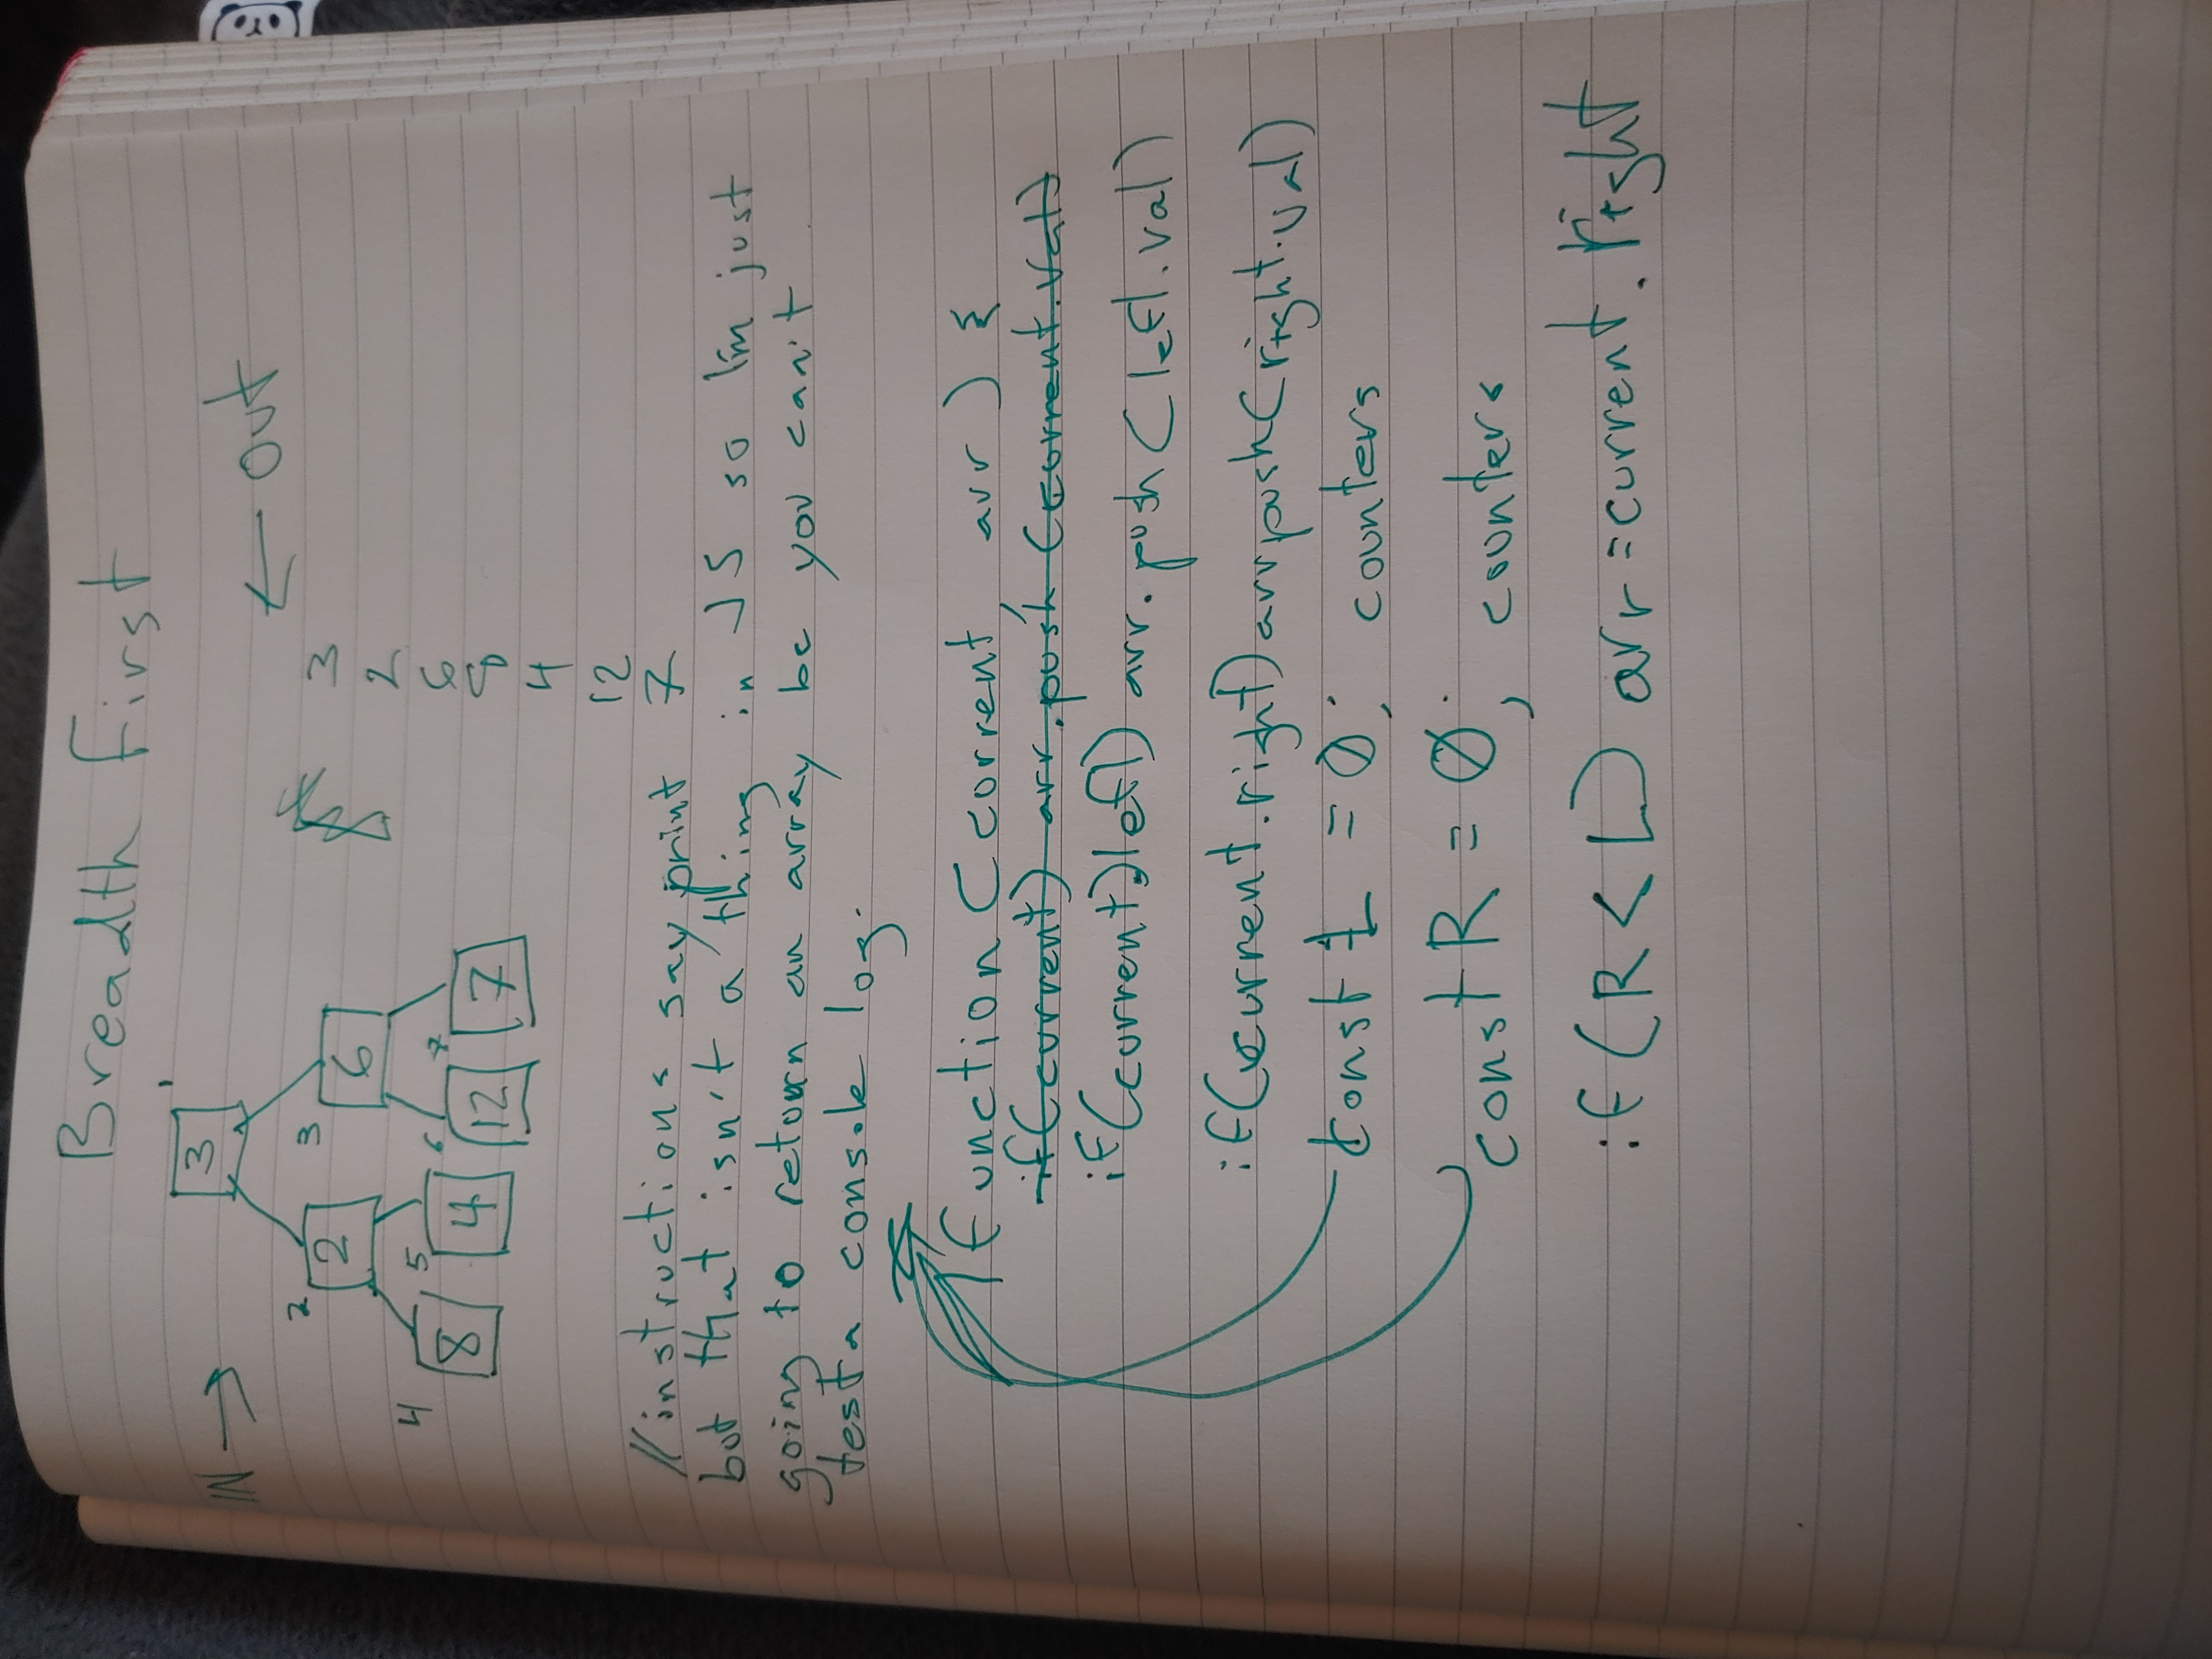 Breadth First
IN →
1
3
← OUT
2
2
3
6
4
8
5
4
6
12
7
7
3
2
6
8
4
12
7
//instructions say print
but that isn't a thing in JS so I'm just
going to return an array bc you can't
test a console log.
function (current, arr) {
if(current) arr.push (current.val)
if(current.left) arr.push (left.val)
if(current.right) arr.push(right.val)
const L = 0; counters
const R = 0; counters
if (R < L) arr = current.right